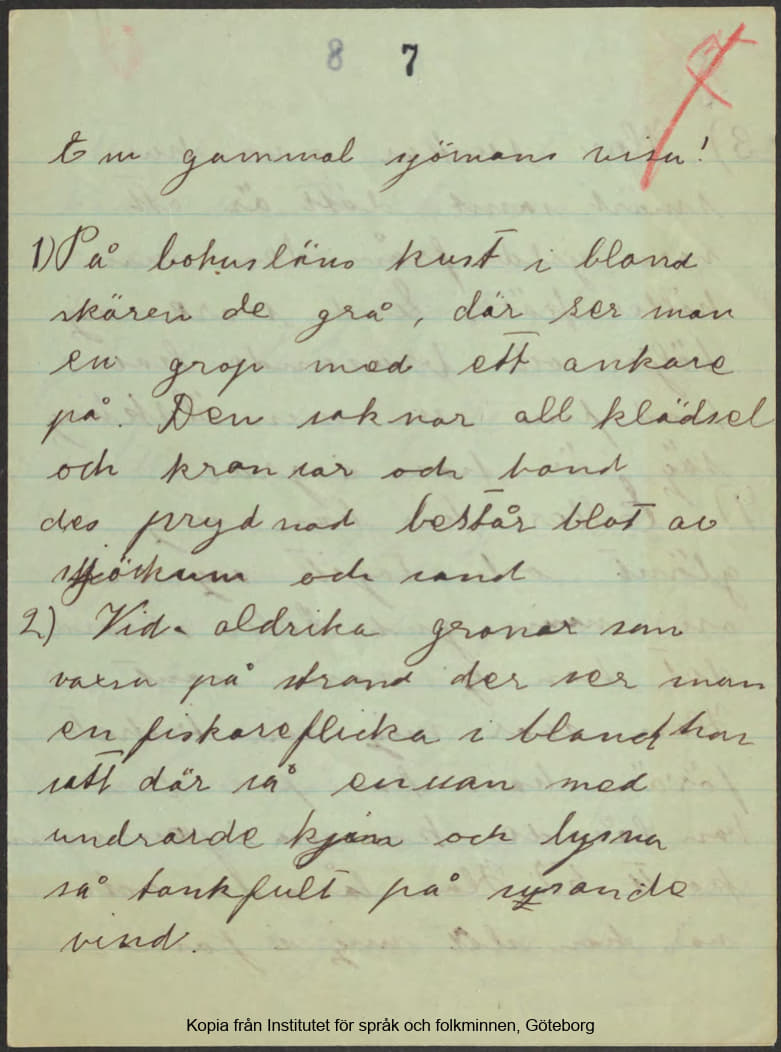 8 7
En gammal sjömans visa!
1) På bohusläns kust i bland
skären de grå, där ser man
en grop med ett ankare
på. Den saknar all klädsel
och kransar och band
des prydnad består blot av
och sand
2) Vid aldrika granar som
vaxsa på strand der ser man
en fiskareflicka i bland hon
satt där så ensan med
undrarde och lysna
så tankfult på susande
vind.
Kopia från Institutet för språk och folkminnen, Göteborg